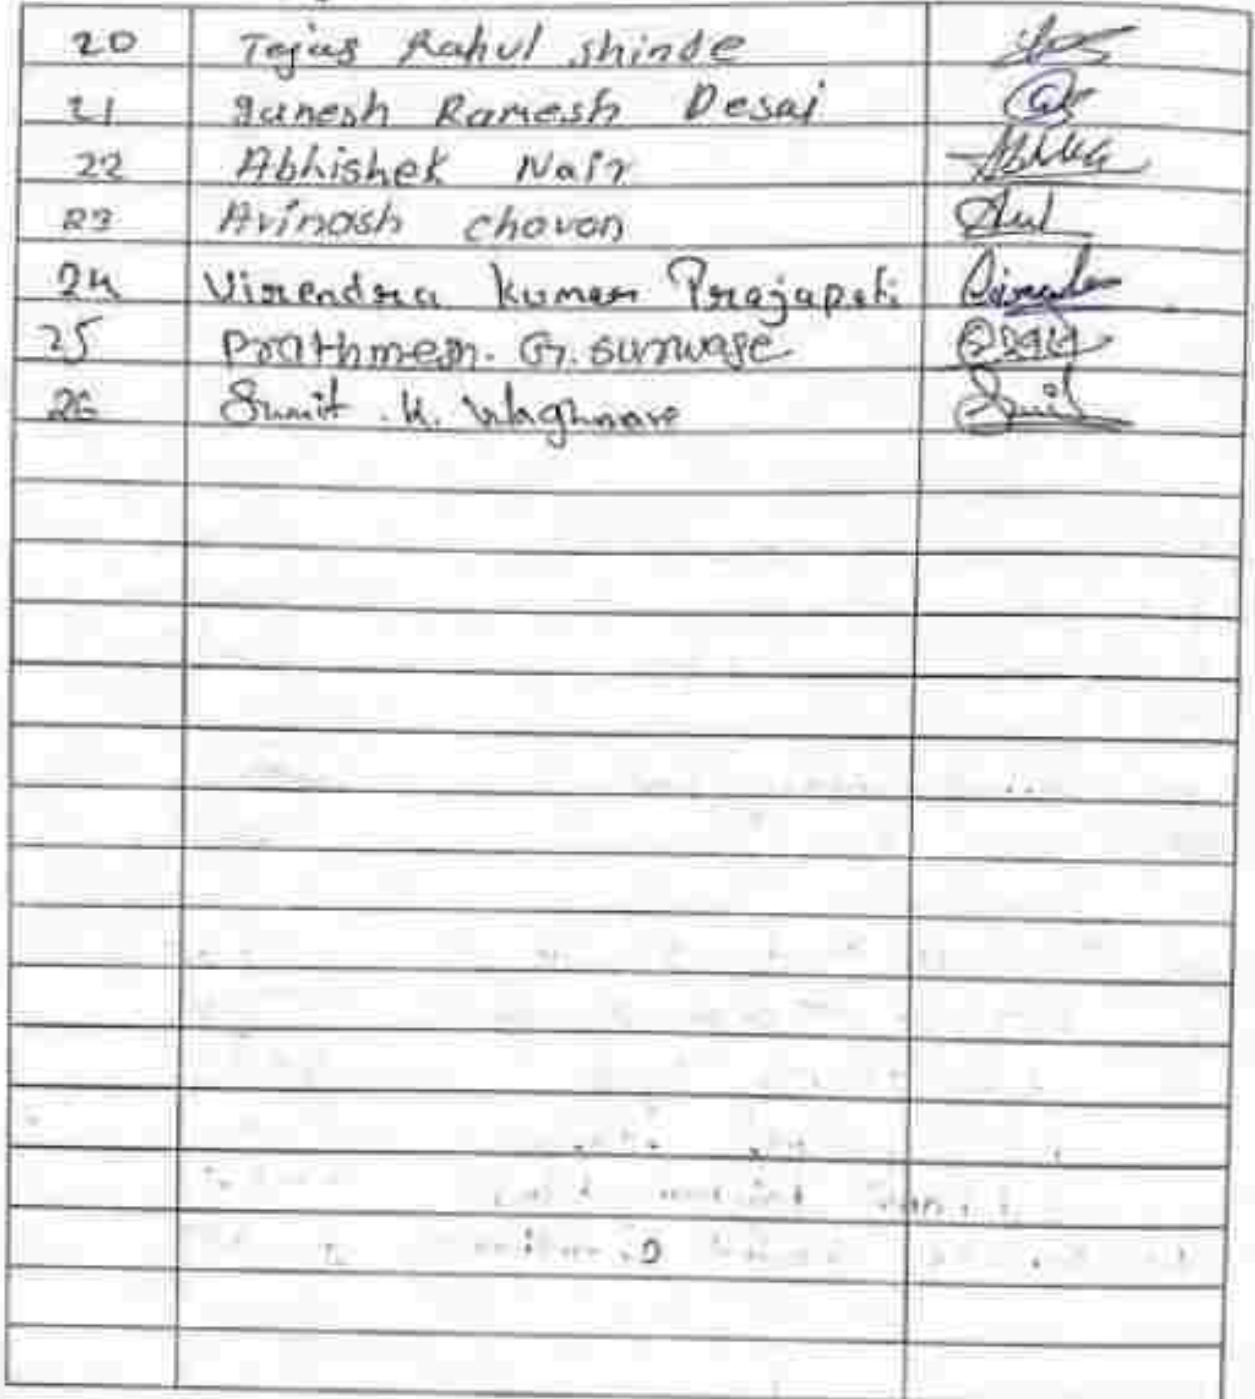 20 Tejas Rahul shinde
21 ganesh Ramesh Desai
22 Abhishek Nair
23 Avinash chavan
24 Virendra kumar Prajapati
25 Prathmesh. G. surwase
26 Sumit . K. Waghmare